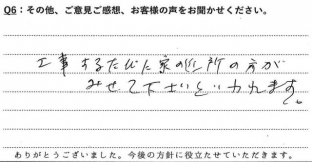 Q6：その他、ご意見ご感想、お客様の声をお聞かせください。
工事するたびに家の近所の方が
みせて下さいといわれます。
ありがとうございました。今後の方針に役立たせていただきます。